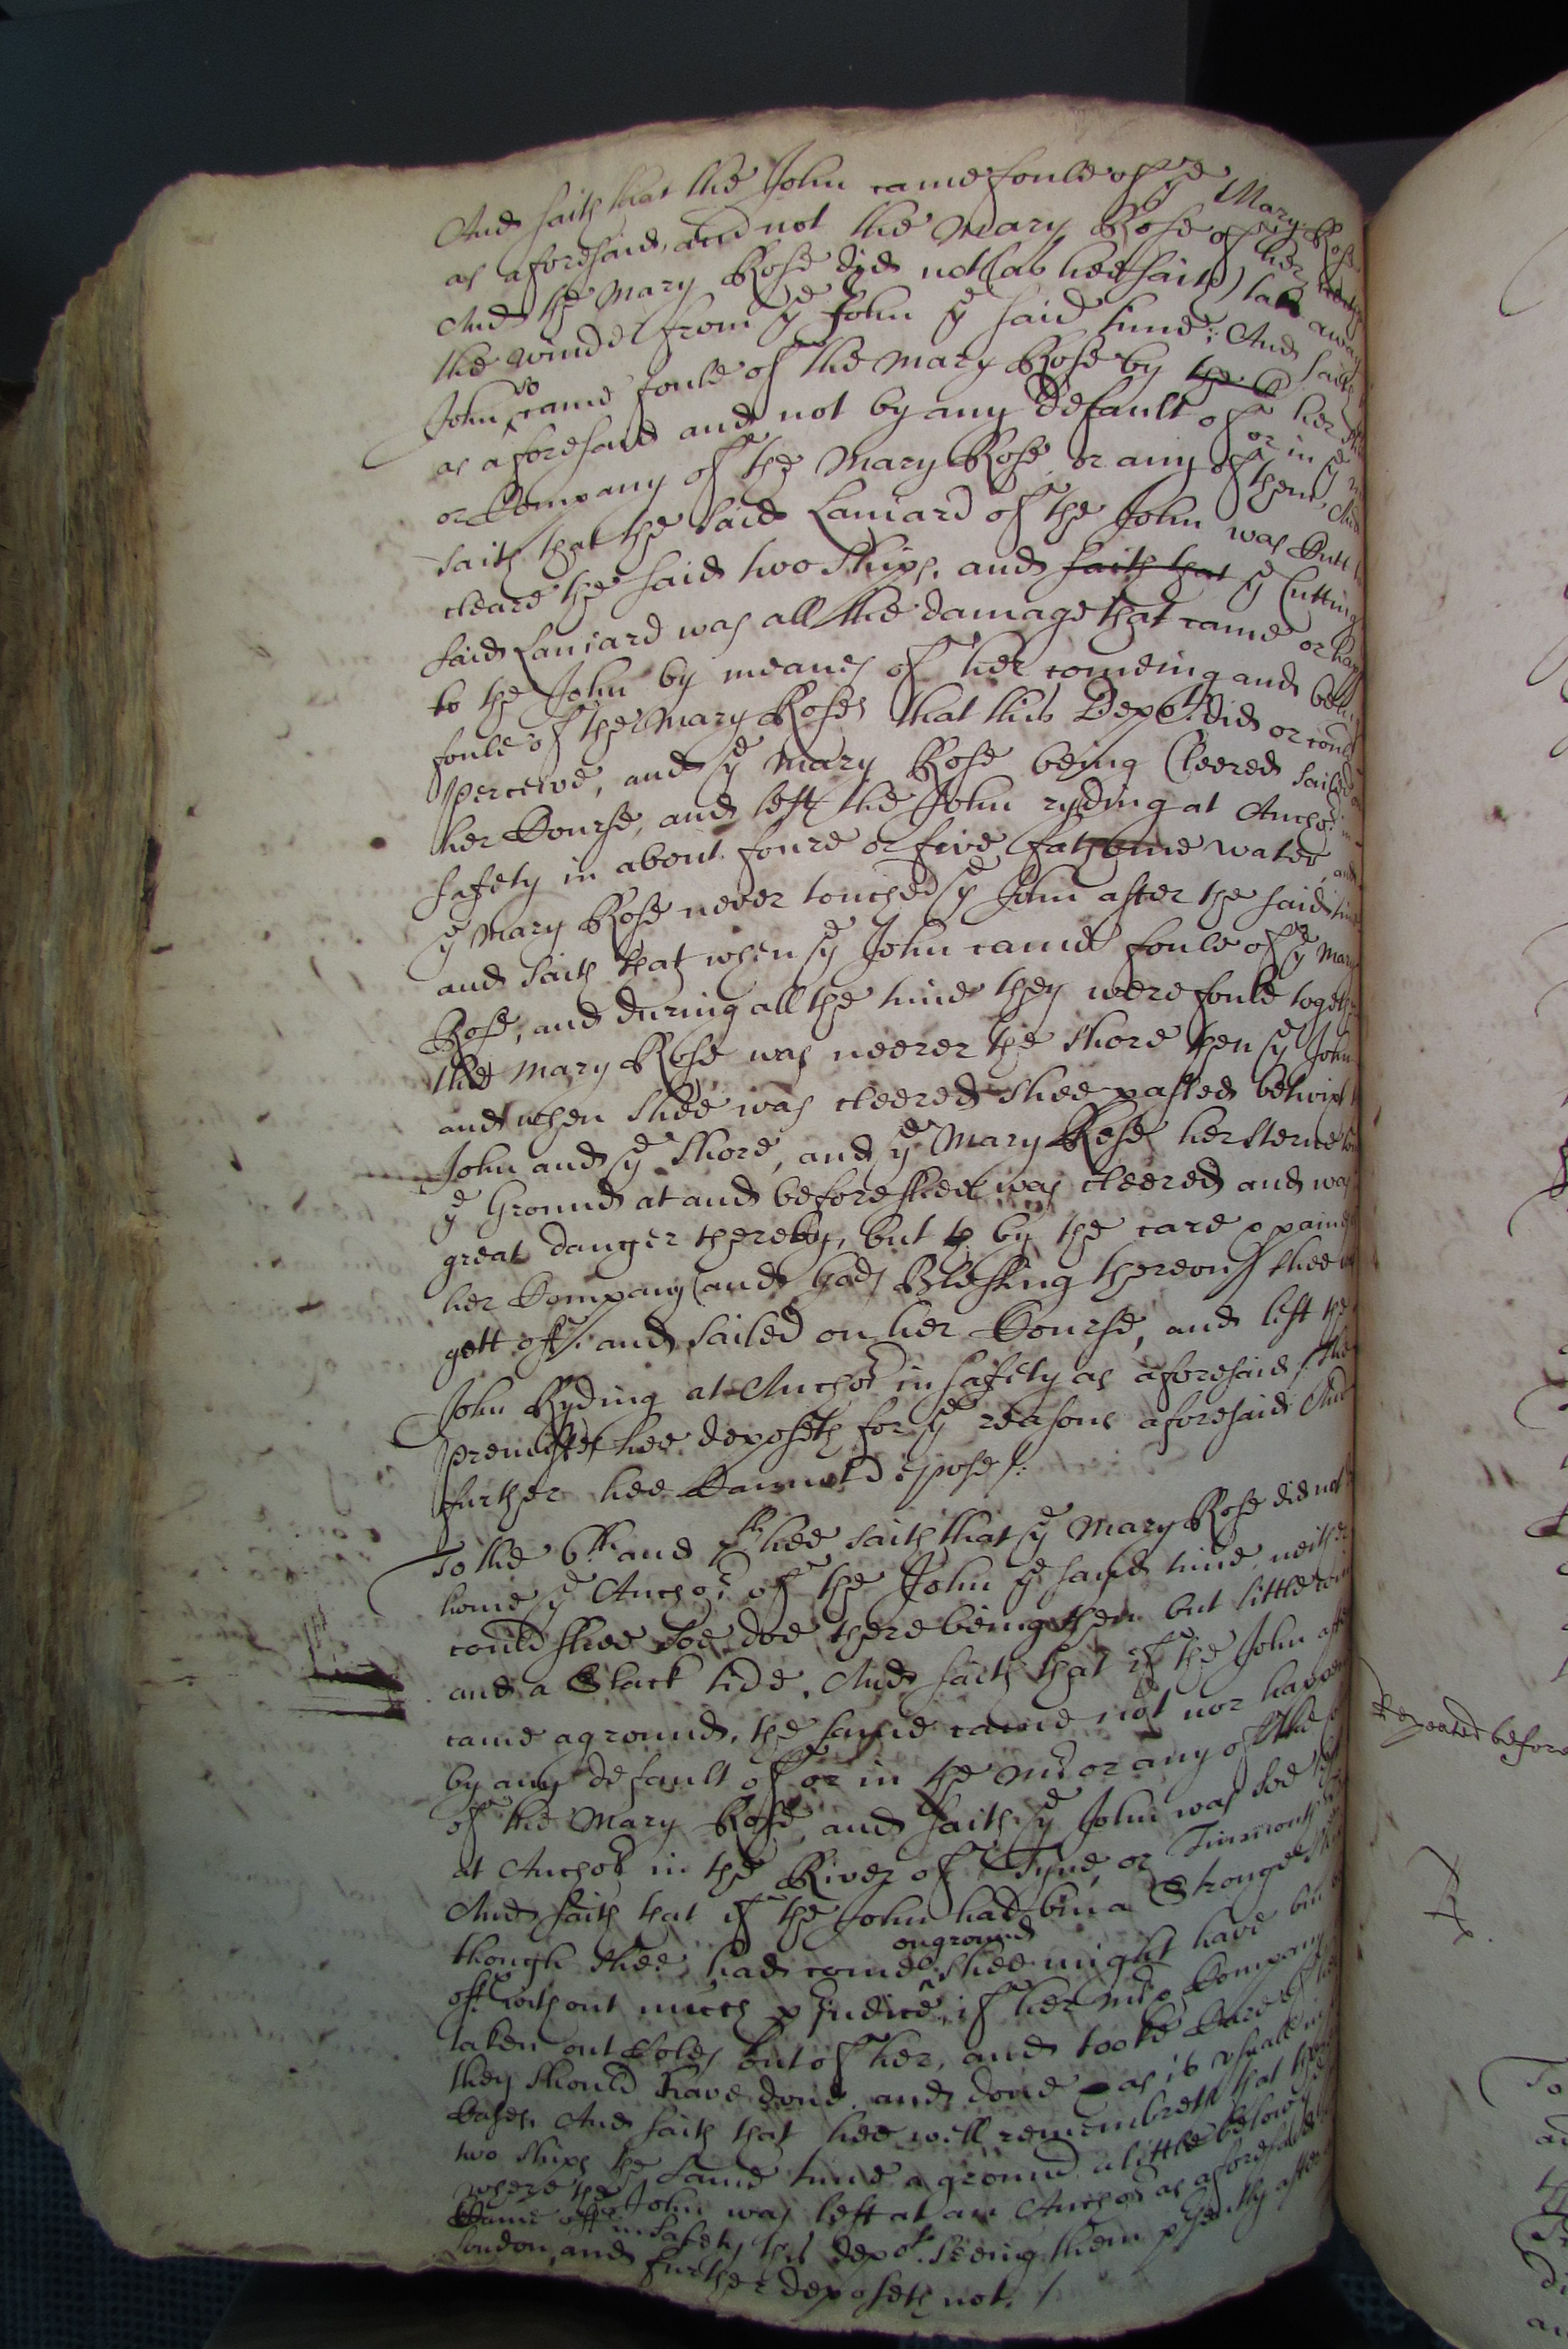 And saith that the John came foule of ye Mary Rose
as aforesaid, and not the Mary Rose of her
And the Mary Rose did not (as hee saith) take away
the winde from ye John ye said time: And saith
John so came foule of the Mary Rose by the C her
as aforesaid and not by any default of or in ye
or Company of the Mary Rose or any of them, And
saith that the said Laniard of the John was Cutt to
cleare the said two Shipps, and saith that ye Cutting
said Laniard was all the damage that came or
to the John by meanes of her comeing and being
foule of the Mary Rose, that this Depot. did or could
perceive, and ye Mary Rose being Cleered sailed on
her Course, and left the John ryding at Anchor in
safety in about foure or five fathome water, and
ye Mary Rose never touched ye John after the said time
and saith that when ye John came foule of ye Mary
Rose, and during all the time they were foule together
the Mary Rose was neerer the shore then ye John
and when shee was cleered shee passed betwixt
John and ye Shore, and ye Mary Rose her sterne
ye Ground at and before shee was cleered and was
great danger thereby, but th by the care & paines
her Company (and Gods Blessing thereon) shee
gott off: and sailed on her Course, and left the
John Ryding at Anchor in safety as aforesaid / the
premisses hee deposeth for ye reasons aforesaid And
further hee Cannot depose /:
To the 6th and hee saith that ye Mary Rose did not
home ye Anchor of the John ye same time, neither
could shee soe doe there being then but little
and a Slack tide, And saith that if the John after
came aground, the same came not nor happen
by any default of or in the Mr or any of the
of the Mary Rose, and saith ye John was soe left
at Anchor in the River of Tyne, or Tinmouth
And saith that if the John had bin a Stronge
though shee had come onground shee might have bin
off without much pjudice, if her Mr & Company
taken out Coles out of her, and tooke Care of
they should have done and done as is usuall in
Cases. And saith that hee well remembreth that
two ships the same time aground a little below
where the John was left at an Anchor as aforesaid
Came off in safety this depot. seeing them psently after
London, and further deposeth not. /
Repeated before